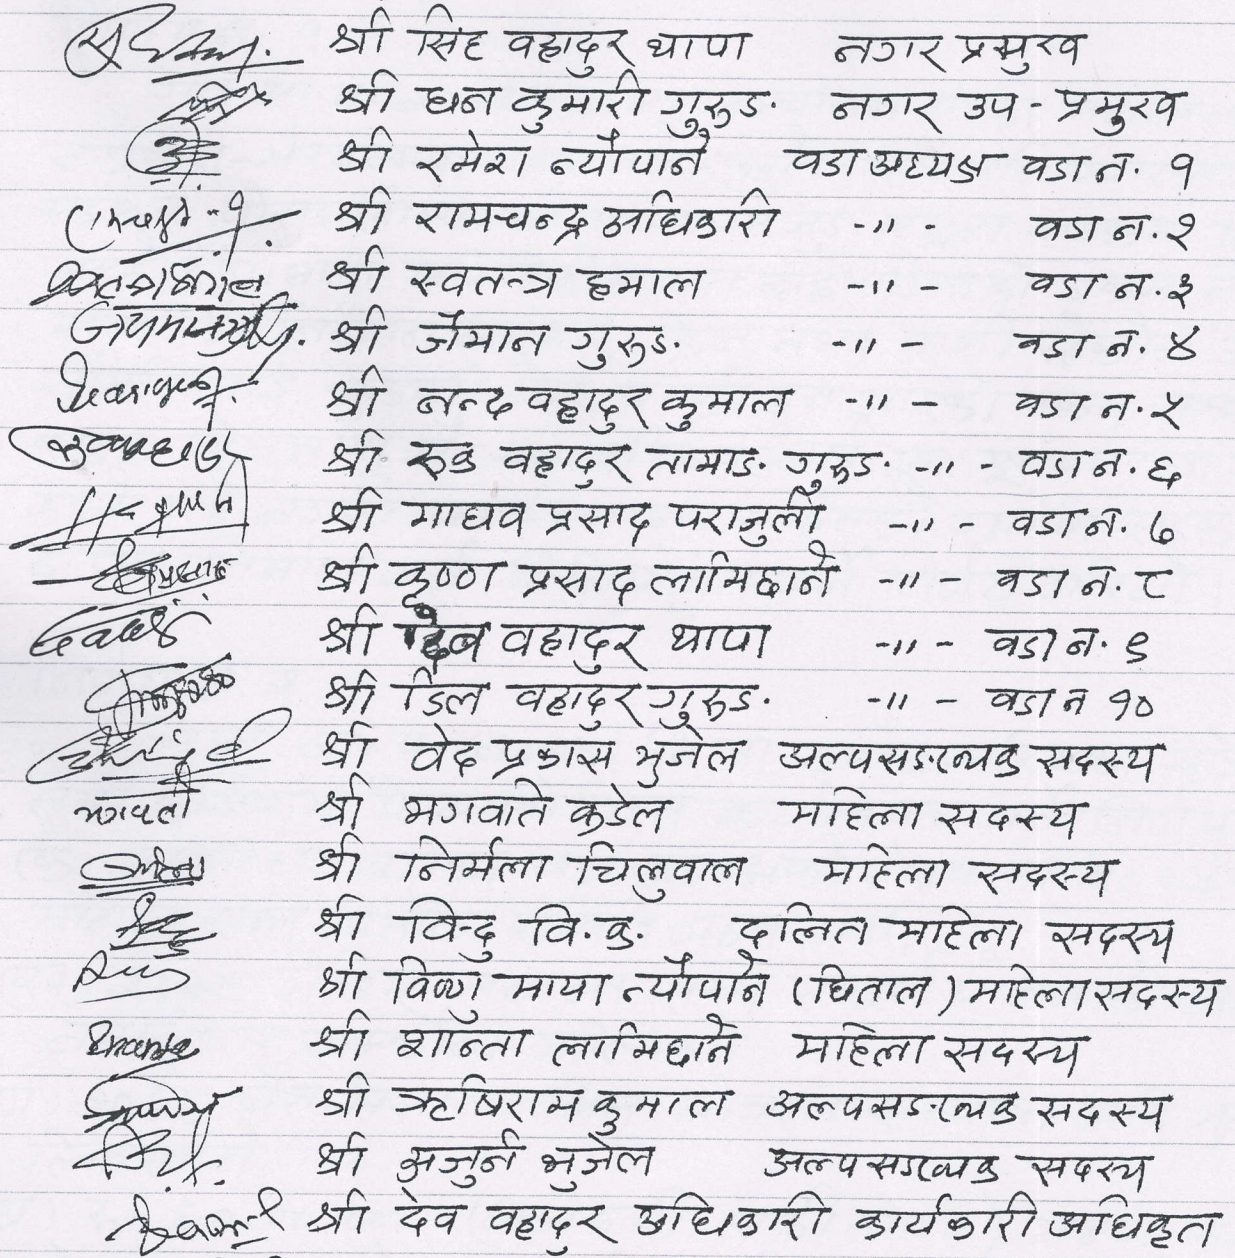 श्री सिंह वहादुर थापा नगर प्रमुख
श्री धन कुमारी गुरुड. नगर उप - प्रमुख
श्री रमेश न्यौपाने वडा अध्यक्ष वडा न. १
श्री रामचन्द्र अधिकारी -"- वडा न. २
श्री स्वतन्त्र हमाल -"- वडा न. ३
श्री जैमान गुरुड. -"- वडा न. ४
श्री नन्द वहादुर कुमाल -"- वडा न. ५
श्री रुक वहादुर तामाड. गुरुड. -"- वडा न. ६
श्री माधव प्रसाद पराजुली -"- वडा न. ७
श्री कृष्ण प्रसाद लामिछाने -"- वडा न. ८
श्री देव वहादुर थापा -"- वडा न. ९
श्री डिल वहादुर गुरुड. -"- वडा न १०
श्री वेद प्रकास भुजेल अल्पसङख्यक सदस्य
भगवती श्री भगवति कडेल महिला सदस्य
श्री निर्मला चिलुवाल महिला सदस्य
श्री विन्दु वि. क. दलित महिला सदस्य
श्री विष्णु माया न्यौपाने (धिताल) महिला सदस्य
श्री शान्ता लामिछाने महिला सदस्य
श्री ऋषिराम कुमाल अल्पसङख्यक सदस्य
श्री अर्जुन भुजेल अल्पसङख्यक सदस्य
श्री देव वहादुर अधिकारी कार्यकारी अधिकृत